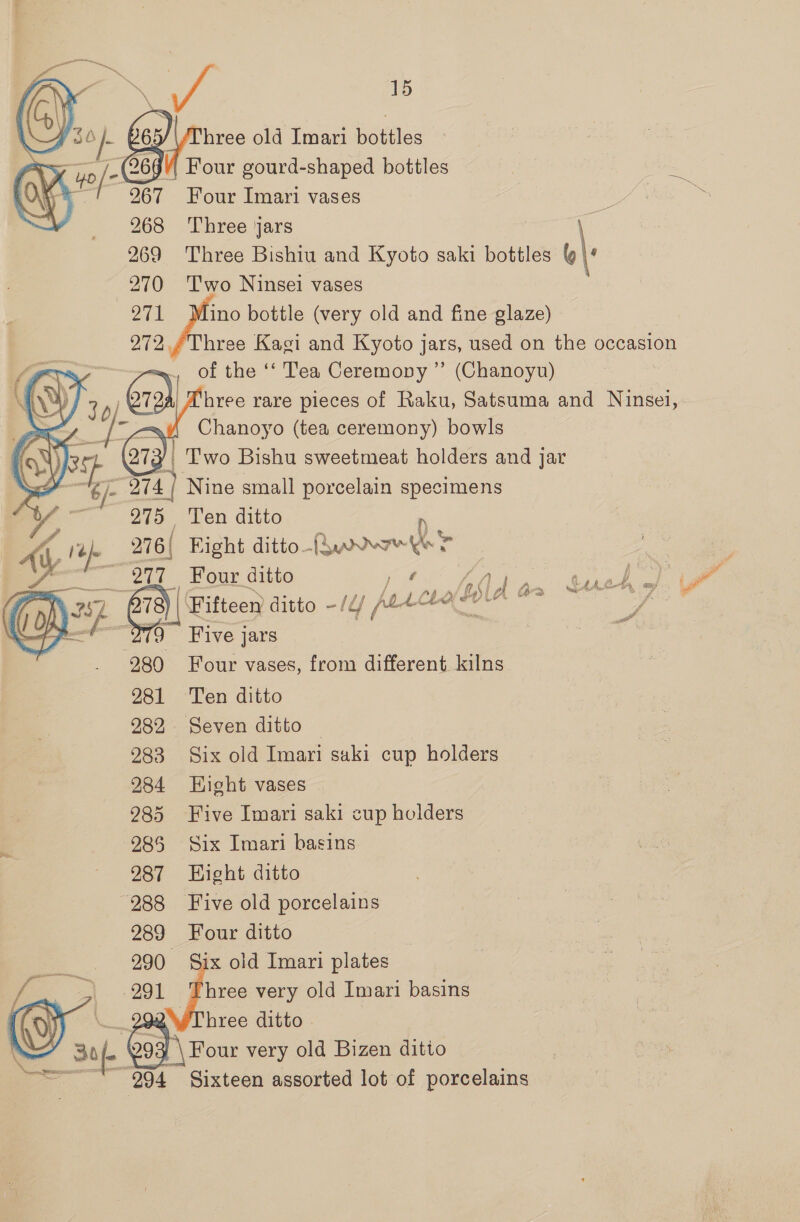 15
30/- 265 Three old Imari bottles
40/- 266 Four gourd-shaped bottles
267 Four Imari vases
268 Three jars
269 Three Bishiu and Kyoto saki bottles
270 Two Ninsei vases
271 Mino bottle (very old and fine glaze)
272 Three Kagi and Kyoto jars, used on the occasion
of the “ Tea Ceremony ” (Chanoyu)
30/- 272A Three rare pieces of Raku, Satsuma and Ninsei,
Chanoyo (tea ceremony) bowls
35/- 273 Two Bishu sweetmeat holders and jar
6/- 274 Nine small porcelain specimens
275 Ten ditto
12/- 276 Eight ditto
277 Four ditto
25/- 278 Fifteen ditto - 14 pieces sold as such
279 Five jars
280 Four vases, from different kilns
281 Ten ditto
282 Seven ditto
283 Six old Imari saki cup holders
284 Eight vases
285 Five Imari saki cup holders
286 Six Imari basins
287 Eight ditto
288 Five old porcelains
289 Four ditto
290 Six old Imari plates
291 Three very old Imari basins
292 Three ditto
30/- 293 Four very old Bizen ditto
294 Sixteen assorted lot of porcelains